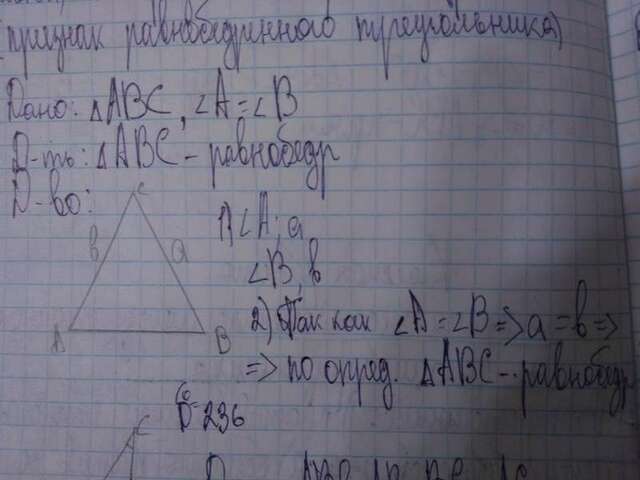 (признак равнобедренного треугольника)
Дано: △ABC, ∠A=∠B
Д-ть: △ABC - равнобедр
Д-во:
C
в
a
A
B
1) ∠A; a
∠B, в
2) Так как ∠A=∠B => a=в =>
=> по опред. △ABC - равнобедр
236
C